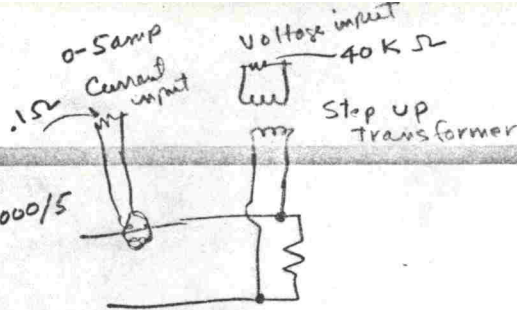 0-5amp
Current
input
.1Ω
Voltage input
40K Ω
Step up
transformer
000/5